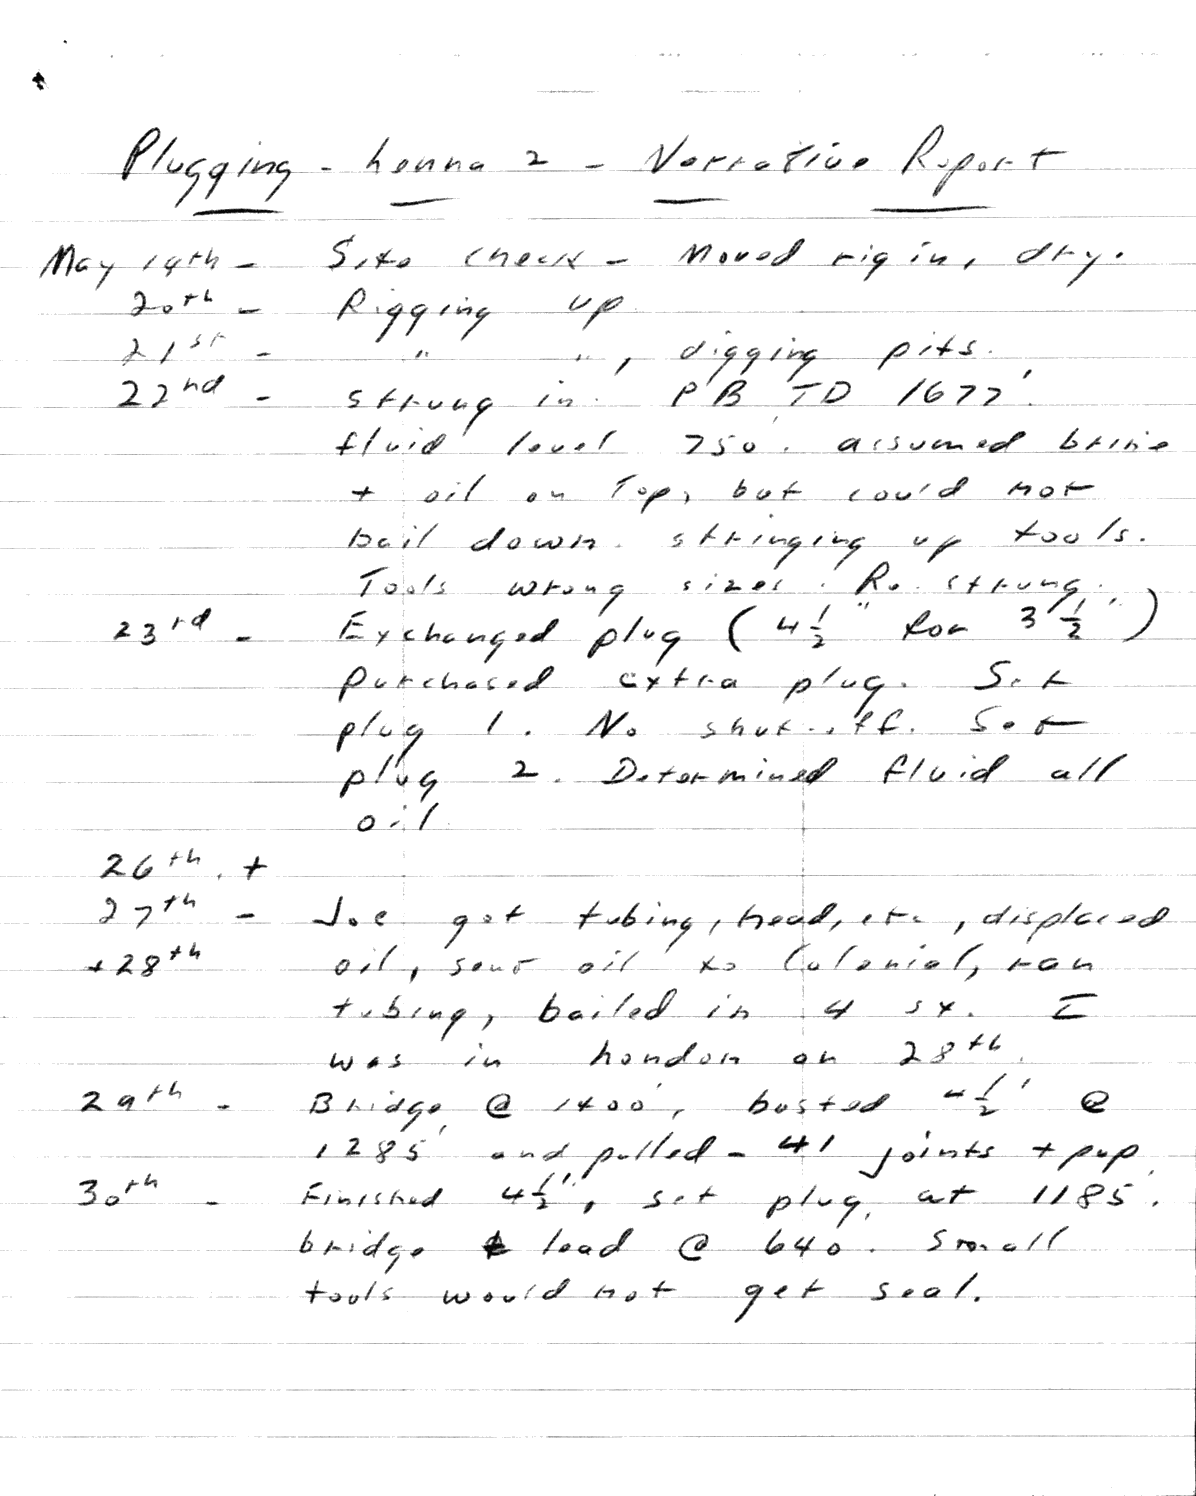 Plugging - Lenna 2 - Narrative Report
May 19th - Site check - Moved rig in, dry.
20th - Rigging up
21st - " " , digging pits.
22nd - strung in. PB TD 1677'.
fluid level 750'. assumed brine
+ oil on Top, but could not
bail down. stringing up tools.
Tools wrong sizes. Re. strung.
23rd - Exchanged plug ( 4 1/2" for 3 1/2" )
Purchased extra plug. Set
plug 1. No shut-off. Set
plug 2. Determined fluid all
oil
26th. +
27th - Joe got tubing, head, etc, displaced
+ 28th oil, sent oil to Colonial, ran
tubing, bailed in 4 sx. I
was in London on 28th.
29th - Bridge @ 1400', busted 4 1/2' @
1285' and pulled - 41 joints + pup
30th - Finished 4 1/2", set plug at 1185'.
bridge lead @ 640'. Small
tools would not get seal.